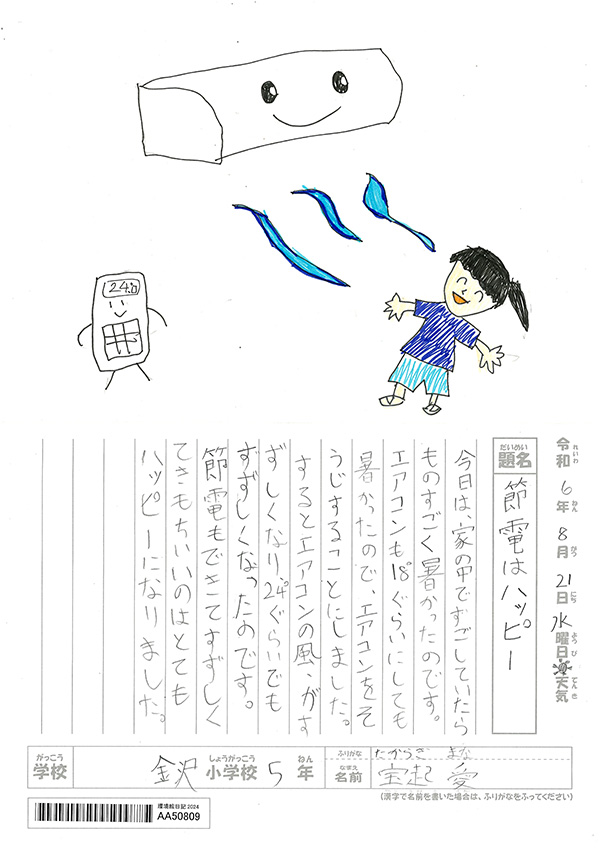 24.0
令和6年8月21日水曜日 天気
れいわ ねん がつ にち ようび てんき
だいめい
題名
節電はハッピー
今日は、家の中ですごしていたら
ものすごく暑かったのです。
エアコンも18°ぐらいにしても
暑かったので、エアコンをそ
うじすることにしました。
するとエアコンの風、がす
ずしくなり24°ぐらいでも
すずしくなったのです。
節電もできてすずしく
てきもちいいのはとても
ハッピーになりました。
がっこう
学校
しょうがっこう ねん
金沢小学校5年
ふりがな
たからぎ まな
なまえ
名前
宝起 愛
(漢字で名前を書いた場合は、ふりがなをふってください)
環境絵日記 2024
AA50809